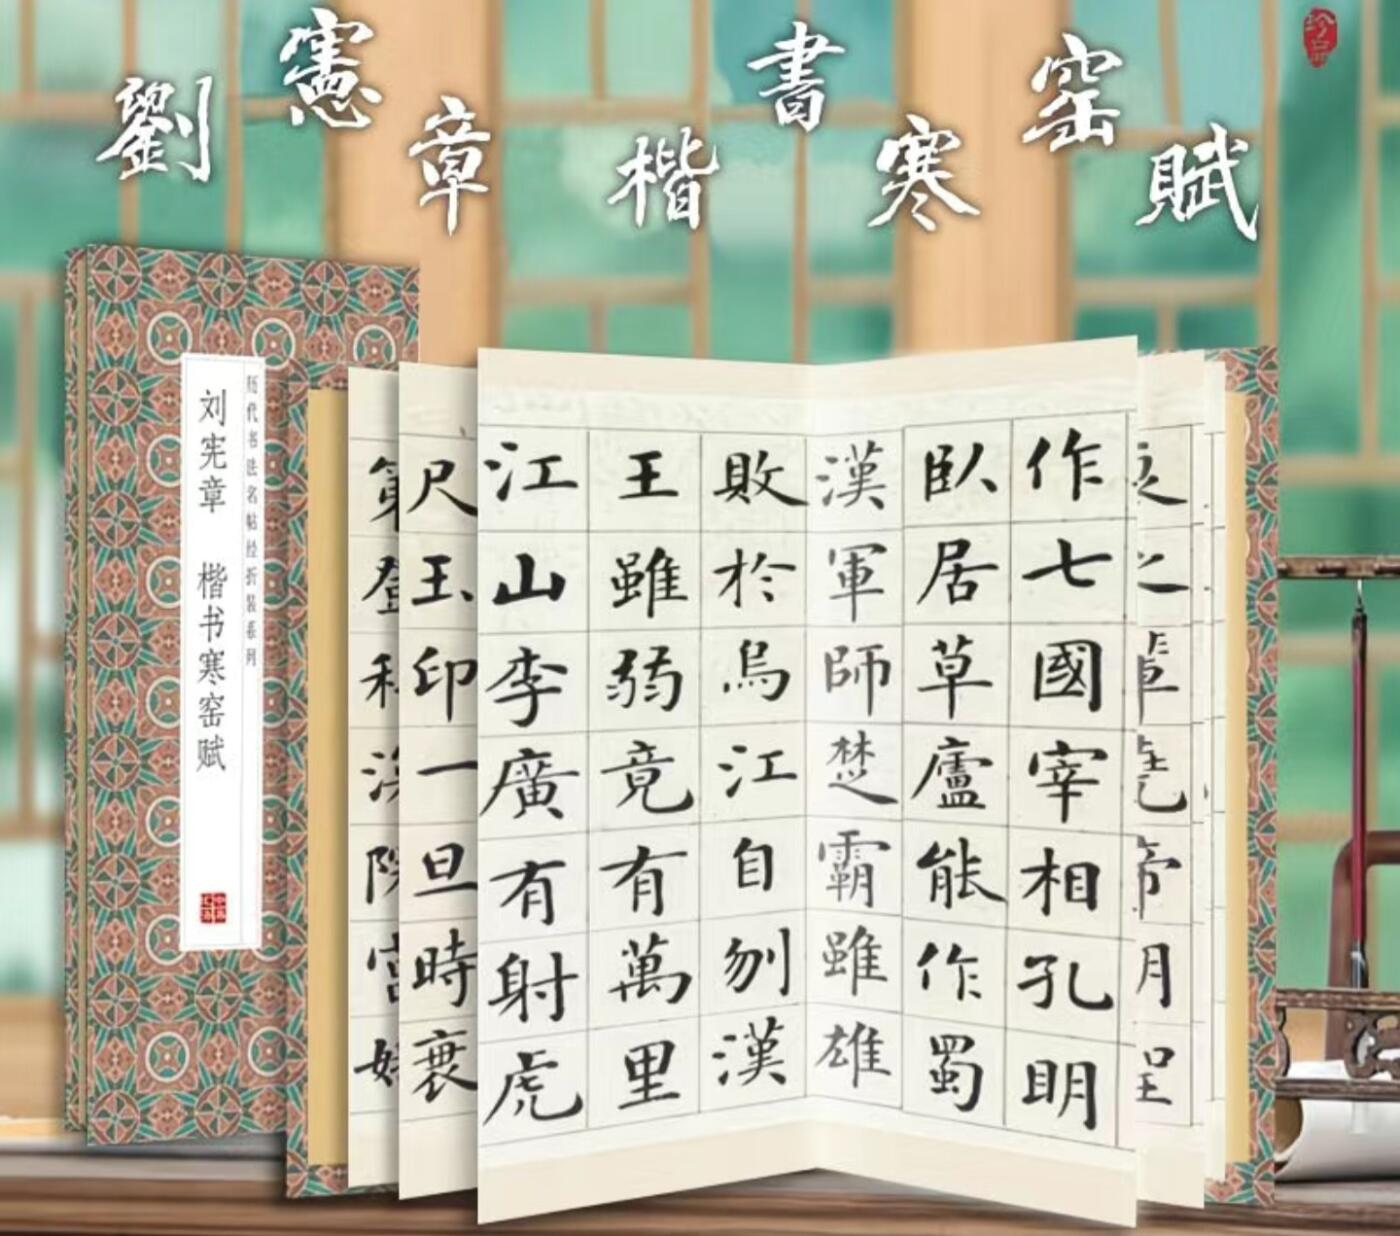 劉憲章楷書寒窑賦
珍品
历代书法名帖经折装系列
刘宪章 楷书寒窑赋
作七國宰相孔明
臥居草廬能作蜀
漢軍師楚霸雖雄
敗於烏江自刎漢
王雖弱竟有萬里
江山李廣有射虎
尺玉印一旦時衰